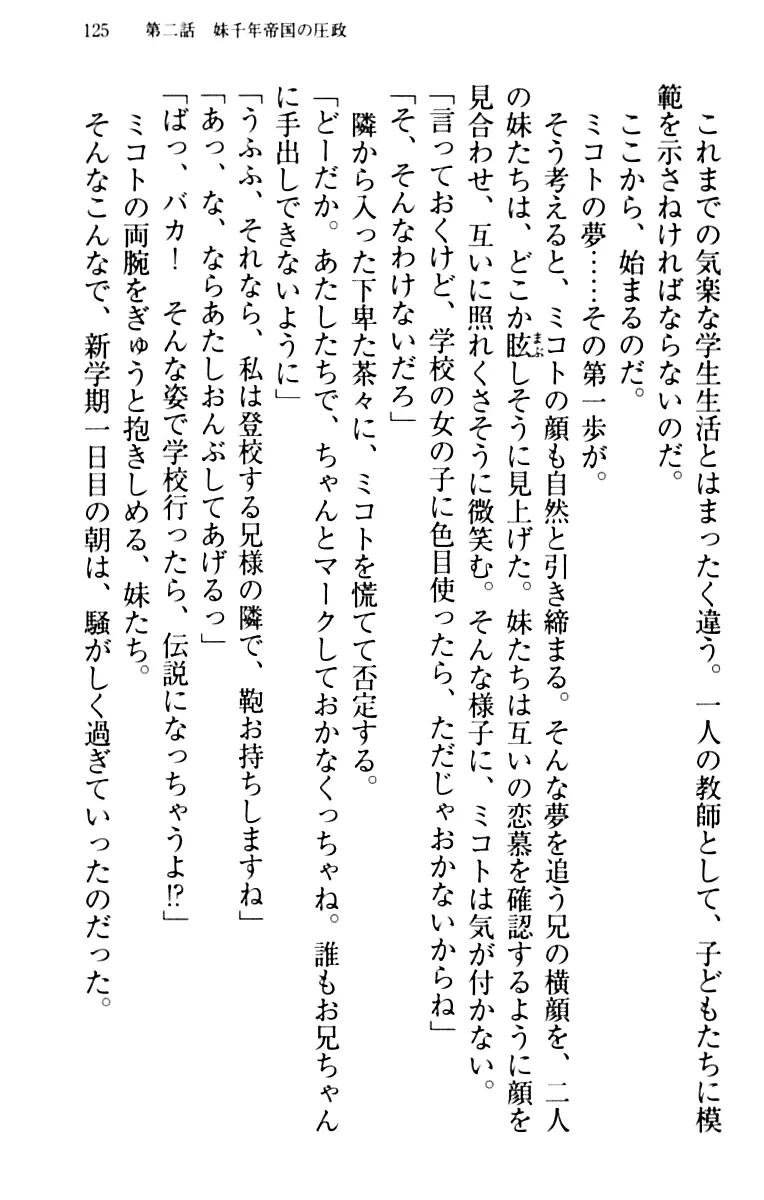 125　第二話　妹千年帝国の圧政
これまでの気楽な学生生活とはまったく違う。一人の教師として、子どもたちに模
範を示さねければならないのだ。
ここから、始まるのだ。
ミコトの夢……その第一歩が。
そう考えると、ミコトの顔も自然と引き締まる。そんな夢を追う兄の横顔を、二人
の妹たちは、どこか眩しそうに見上げた。妹たちは互いの恋慕を確認するように顔を
見合わせ、互いに照れくさそうに微笑む。そんな様子に、ミコトは気が付かない。
「言っておくけど、学校の女の子に色目使ったら、ただじゃおかないからね」
「そ、そんなわけないだろ」
隣から入った下卑た茶々に、ミコトを慌てて否定する。
「どーだか。あたしたちで、ちゃんとマークしておかなくっちゃね。誰もお兄ちゃん
に手出しできないように」
「うふふ、それなら、私は登校する兄様の隣で、鞄お持ちしますね」
「あっ、な、ならあたしおんぶしてあげるっ」
「ばっ、バカ！　そんな姿で学校行ったら、伝説になっちゃうよ!?」
ミコトの両腕をぎゅうと抱きしめる、妹たち。
そんなこんなで、新学期一日目の朝は、騒がしく過ぎていったのだった。